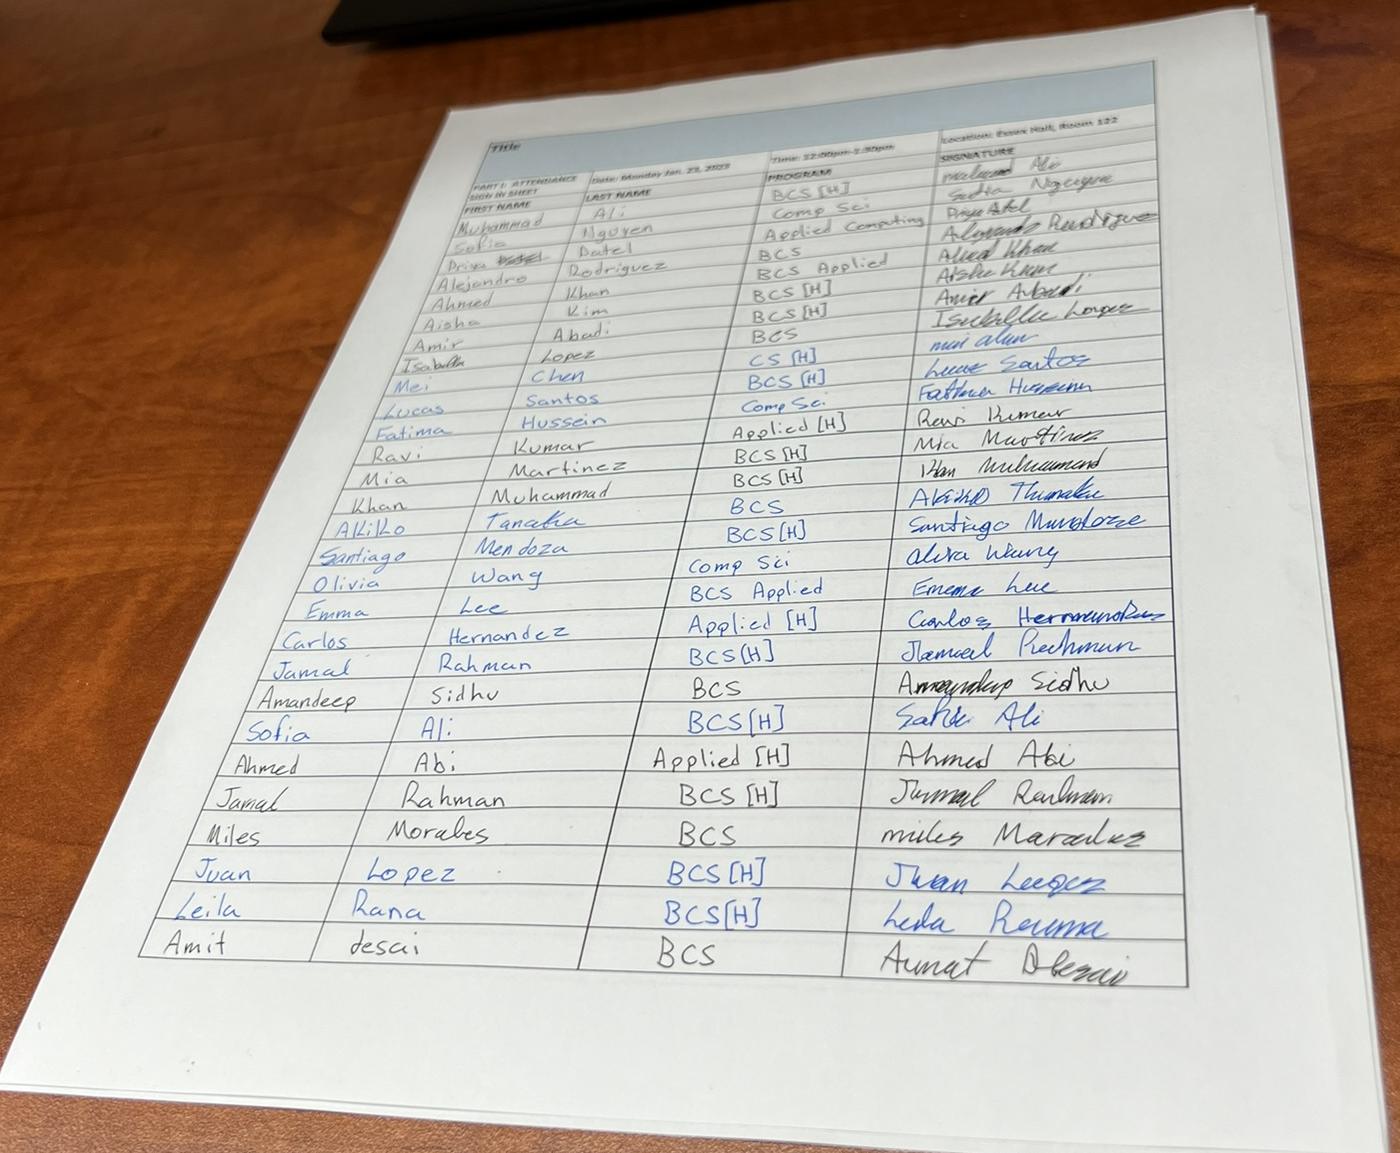 Title
PART I: ATTENDANCE SIGN IN SHEET Date: Monday Jan. 23, 2023 Time: 12:00pm-1:30pm Location: Essex Hall, Room 122
FIRST NAME LAST NAME PROGRAM SIGNATURE
Muhammad Ali BCS [H] Ali
Sofia Nguyen Comp Sci Sofia Nguyen
Priya Patel Applied Computing
Alejandro Rodriguez BCS Alejandro Rodriguez
Ahmed Khan BCS Applied Ahmed Khan
Aisha Kim BCS [H] Aisha Kim
Amir Abadi BCS [H] Amir Abadi
Isabella Lopez BCS Isabella Lopez
Mei Chen CS [H]
Lucas Santos BCS [H] Lucas Santos
Fatima Hussein Comp Sci Fatima Hussein
Ravi Kumar Applied [H] Ravi Kumar
Mia Martinez BCS [H] Mia Martinez
Khan Muhammad BCS [H] Khan Muhammad
Akiko Tanaka BCS Akiko
Santiago Mendoza BCS [H] Santiago
Olivia Wang Comp Sci Wang
Emma Lee BCS Applied Emma Lee
Carlos Hernandez Applied [H] Carlos Hernandez
Jamal Rahman BCS [H] Jamal Rahman
Amandeep Sidhu BCS Amandeep Sidhu
Sofia Ali BCS [H] Ali
Ahmed Abi Applied [H] Ahmed Abi
Jamal Rahman BCS [H] Jamal Rahman
Miles Morales BCS miles
Juan Lopez BCS [H] Juan Lopez
Leila Rana BCS [H]
Amit desai BCS